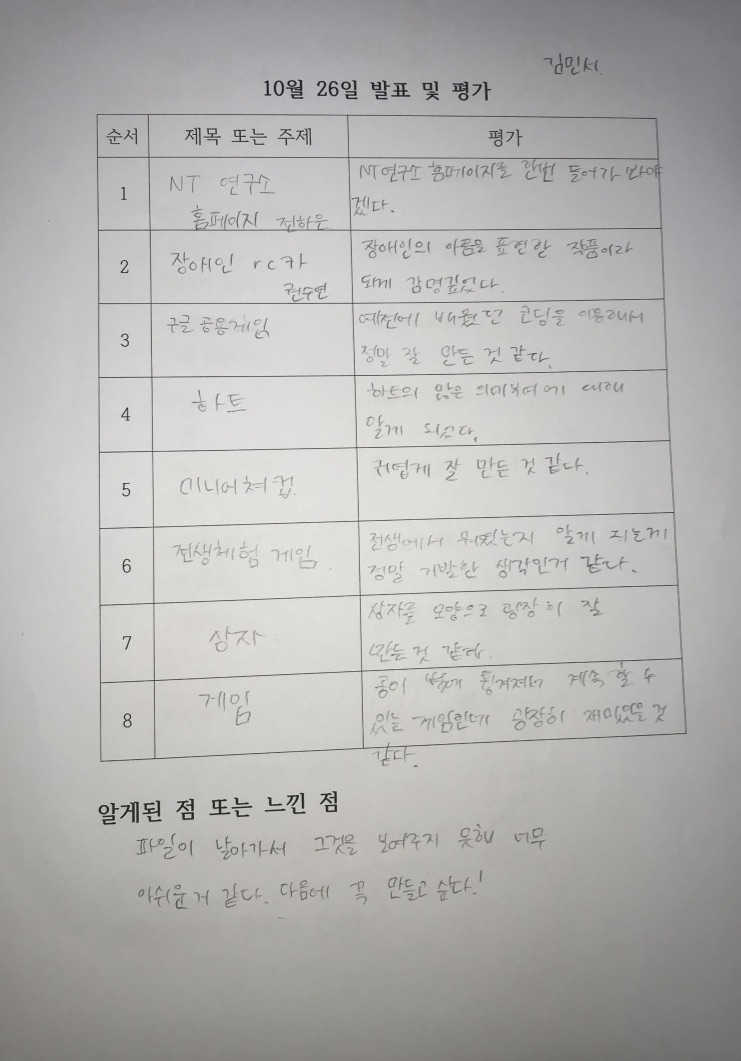 김민서
10월 26일 발표 및 평가
순서 제목 또는 주제 평가
1 NT 연구소
홈페이지 전하은
NT연구소 홈페이지를 한번 들어가 봐야
겠다.
2 장애인 rc카
권수연
장애인의 아픔을 표현한 작품이라
되게 감명깊었다.
3 구글 공용게임
예전에 배웠던 코딩을 이용해서
정말 잘 만든 것 같다.
4 하트
하트의 많은 의미부여에 대해
알게 되었다.
5 미니어쳐 컵
귀엽게 잘 만든 것 같다.
6 전생체험 게임.
전생에서 뭐였는지 알게 되는게
정말 기발한 생각인거 같다.
7 상자
상자를 모양으로 굉장히 잘
만든것 같다.
8 게임
공이 벽에 튕겨져서 계속 할 수
있는 게임인데 굉장히 재미있을 것
같다.
알게된 점 또는 느낀 점
파일이 날아가서 그것을 보여주지 못해 너무
아쉬운거 같다. 다음에 꼭 만들고 싶다!